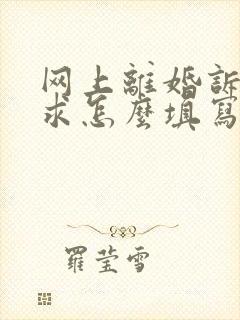 网上離婚訴
求怎麼填寫
羅莹雪